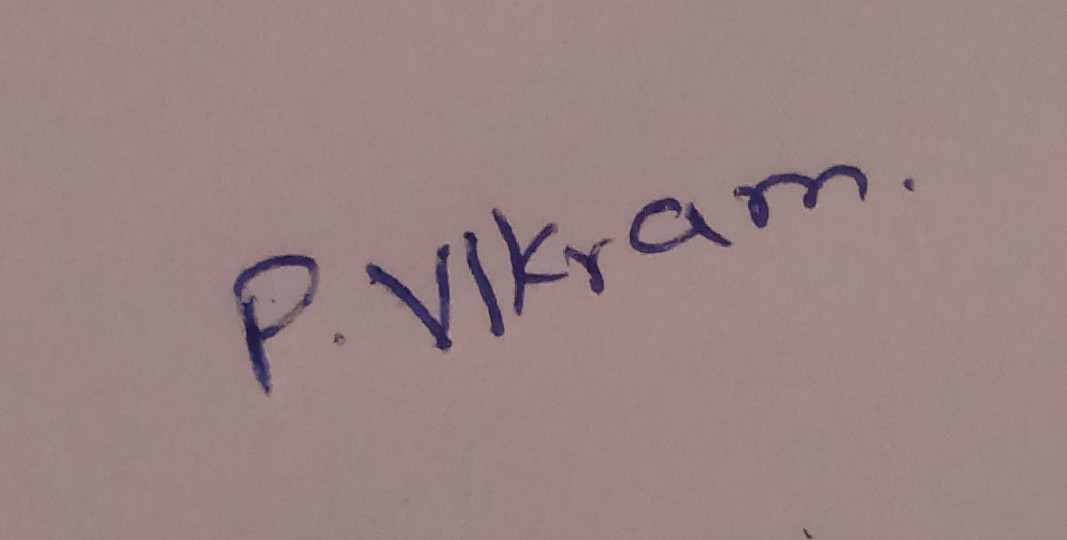 P. Vikram.